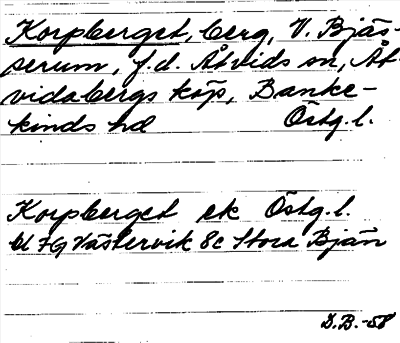 Korpberget, berg, V. Bjäs-
serum, f.d. Åtvids sn, Åt-
vidabergs köp, Banke-
kinds hd Östg.l.
Korpberget ek Östg.l.
bl 7G Västervik 8c Stora Bjän
D.B.-58